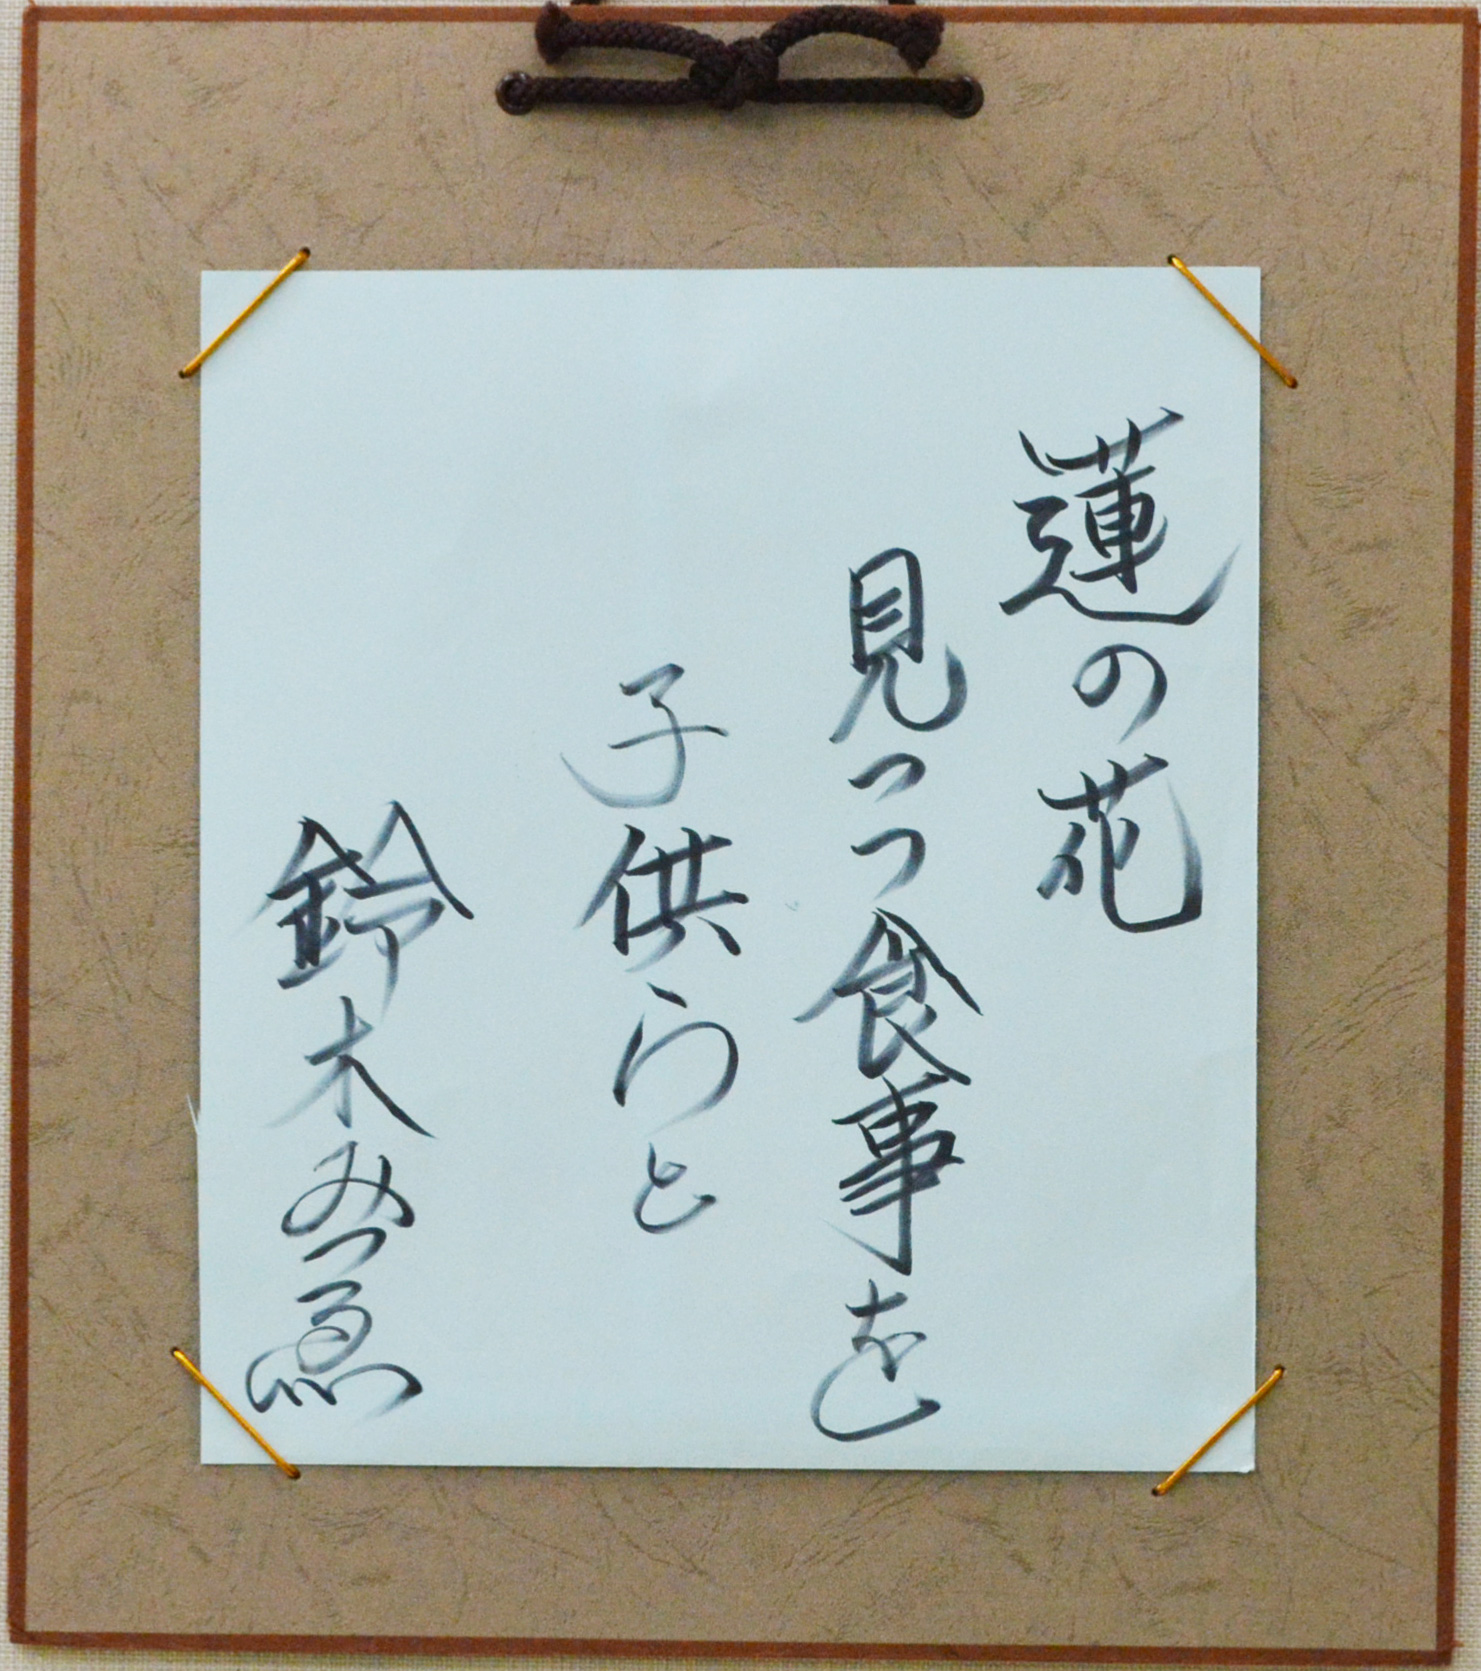 蓮の花
見つつ食事を
子供らと
鈴木みつゑ